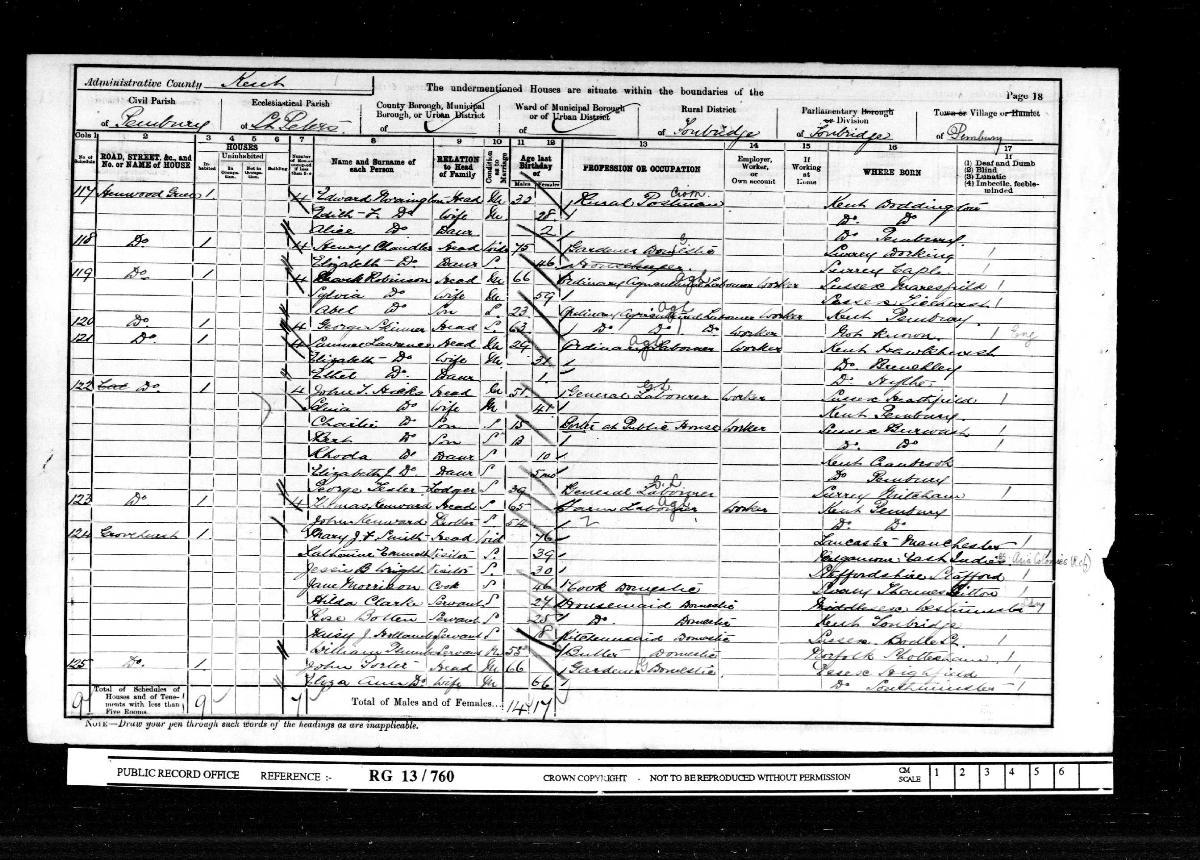 Administrative County Kent
The undermentioned Houses are situate within the boundaries of the
Page 18
Civil Parish of Pembury
Ecclesiastical Parish of St. Peters
County Borough, Municipal Borough, or Urban District of
Ward of Municipal Borough or of Urban District of
Rural District of Tonbridge
Parliamentary Borough or Division of Tonbridge
Town or Village or Hamlet of Pembury
Cols 1 2 3 4 5 6 7 8 9 10 11 12 13 14 15 16 17
No. of Schedule
ROAD, STREET, &c., and No. or NAME of HOUSE
HOUSES
Inhabited
Uninhabited
In Occupation.
Not in Occupation.
Building
Number of Rooms occupied if less than five
Name and Surname of each Person
RELATION to Head of Family
Condition as to Marriage
Age last Birthday of
Males Females
PROFESSION OR OCCUPATION
Employer, Worker, or Own account
If Working at Home
WHERE BORN
If
(1) Deaf and Dumb
(2) Blind
(3) Lunatic
(4) Imbecile, feeble-minded
117 Henwood Green 1 4 Edward Head M 32 Rural Postman Kent Doddington
Edith F. Do Wife M 28 Do. Do
Alice Do Daur 2 Do Pembury
118 Do 1 4 Henry Chandler Head Wid 75 Gardener Domestic Surrey Dorking
Elizabeth Do. Daur S 46 Housekeeper Surrey Capel
119 Do 1 4 Robinson Head M 66 Ordinary Agricultural Labourer Worker Sussex Maresfield
Sylvia Do Wife M 59 Sussex Ticehurst
Abel Do Son S 23 Ordinary Agricultural Labourer Worker Kent Pembury
120 Do 1 4 George Skinner Head S 63 Do Do Do Worker Not Known Eng
121 Do 1 4 Lawrence Head M 29 Ordinary Agl Labourer Worker Kent Hawkhurst
Elizabeth Do Wife M 31 Do Brenchley
Ethel Do Daur 1 Do Hythe
122 Do 1 4 John T. Hicks Head M 51 General Labourer Worker Sussex Heathfield
Do Wife M 41 Kent Pembury
Charlie Do Son S 15 Porter at Public House Worker Sussex Burwash
Bert Do Son S 13 Do Do
Rhoda Do Daur S 10 Kent Cranbrook
Elizabeth J. Do Daur S 5 mo Do Pembury
George Lodger S 39 General Labourer Surrey Mitcham
123 Do 1 4 Thomas Kenward Head S 65 Farm Labourer Worker Kent Pembury
John Kenward Brother S 54 Do Do
124 Grovehurst 1 Mary J. F. Smith Head Wid 76 Lancaster Manchester
Katherine Visitor S 39 East Indies
Jessie B. Wright Visitor S 30 Staffordshire Stafford
Jane Morrison Cook S 46 Cook Domestic Surrey Thames Ditton
Hilda Clarke Servant S 27 Housemaid Domestic Middlesex Westminster
Rose Botten Servant S 25 Do. Domestic Kent Tonbridge
Daisy J. Holland Servant S 18 Kitchenmaid Domestic Sussex Bodle St.
William Servant M 55 Butler Domestic Norfolk
125 Do. 1 John Porter Head M 66 Gardener Domestic Essex
Eliza Ann Do. Wife M 66 Do Southminster
9 Total of Schedules of Houses and of Tenements with less than Five Rooms 9 7 Total of Males and of Females... 14 17
NOTE—Draw your pen through such words of the headings as are inapplicable.
PUBLIC RECORD OFFICE REFERENCE :- RG 13/760 CROWN COPYRIGHT - NOT TO BE REPRODUCED WITHOUT PERMISSION CM SCALE 1 2 3 4 5 6